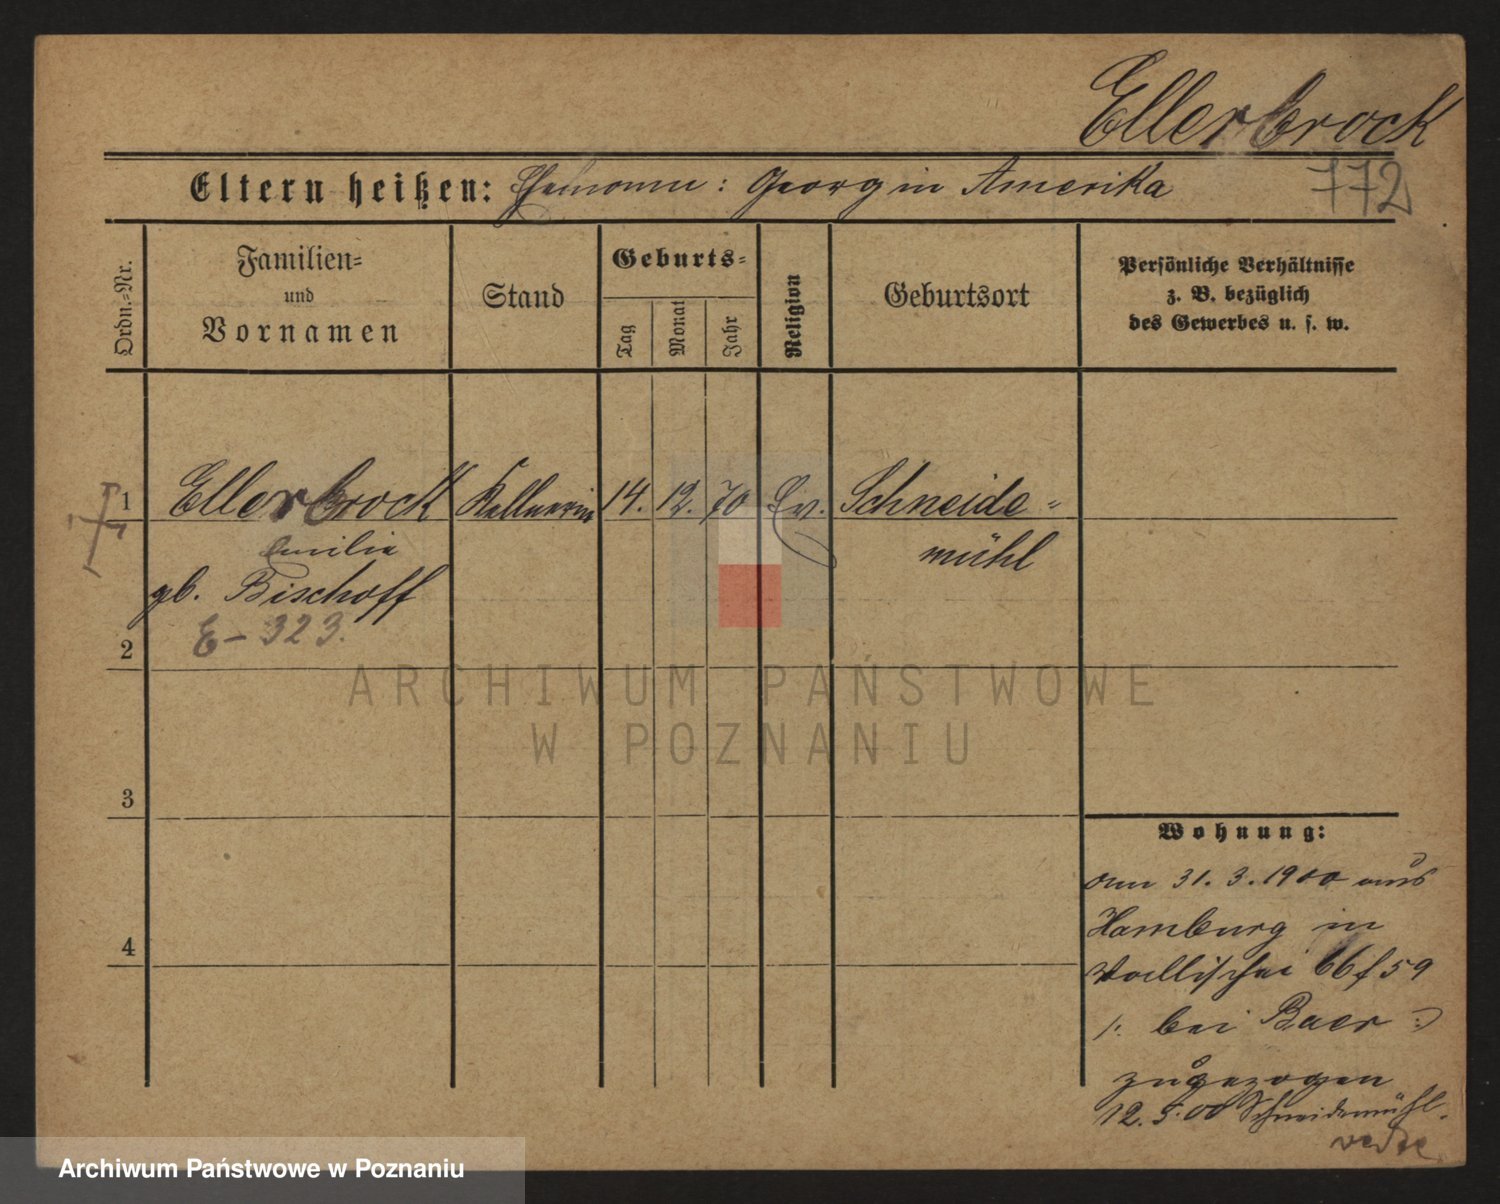 Ellerbrock
Eltern heißen: Ehemann: Georg in Amerika
772
Ordn.-Nr.
Familien-
und
Vornamen
Stand
Geburts-
Tag
Monat
Jahr
Religion
Geburtsort
Persönliche Verhältnisse
z. B. bezüglich
des Gewerbes u. s. w.
1
Ellerbrock Kellnerin 14. 12. 70 Ev. Schneide=
Emilie mühl
gb. Bischoff
E-323.
2
ARCHIWUM PAŃSTWOWE
W POZNANIU
3
4
Wohnung:
am 31. 3. 1900 aus
Hamburg in
Wallischei 66/59
/: bei Baer :/
zugezogen
12. 5. 00 Schneidemühl.
Archiwum Państwowe w Poznaniu